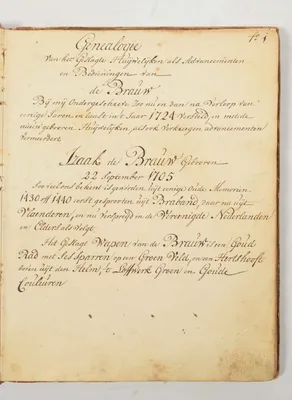 fº 1
Genealogie
Van het Geslagte Huijwelijken als Advancementen
en Bedieningen van
de Brauw
Bij mij Ondergeschreve zoo nu en dan na Verloop van
eenige Jaren en laast in't Jaar 1724 Versteld, en met de
nieuw geboren Huijwelijken, als ook Verkregen advancementen
Vermeerdert
Izaak de Brauw Geboren
22 September 1705
Soo veel ons bekent is geworden uijt eenige Oude Memorien
1430 off 1440 eerst gesprooten uijt Braband, daar na uijt
Vlaenderen, en nu verspreijd in de Vereenigde Nederlanden
en Elders als Volgt
Het Geslags Wapen van de Brauw is een Goud
Rad met Ses Sparren op een Groen Veld, en een Hertshooft
boven uijt den Helm, 't Loffwerk Groen en Goude
Couleuren